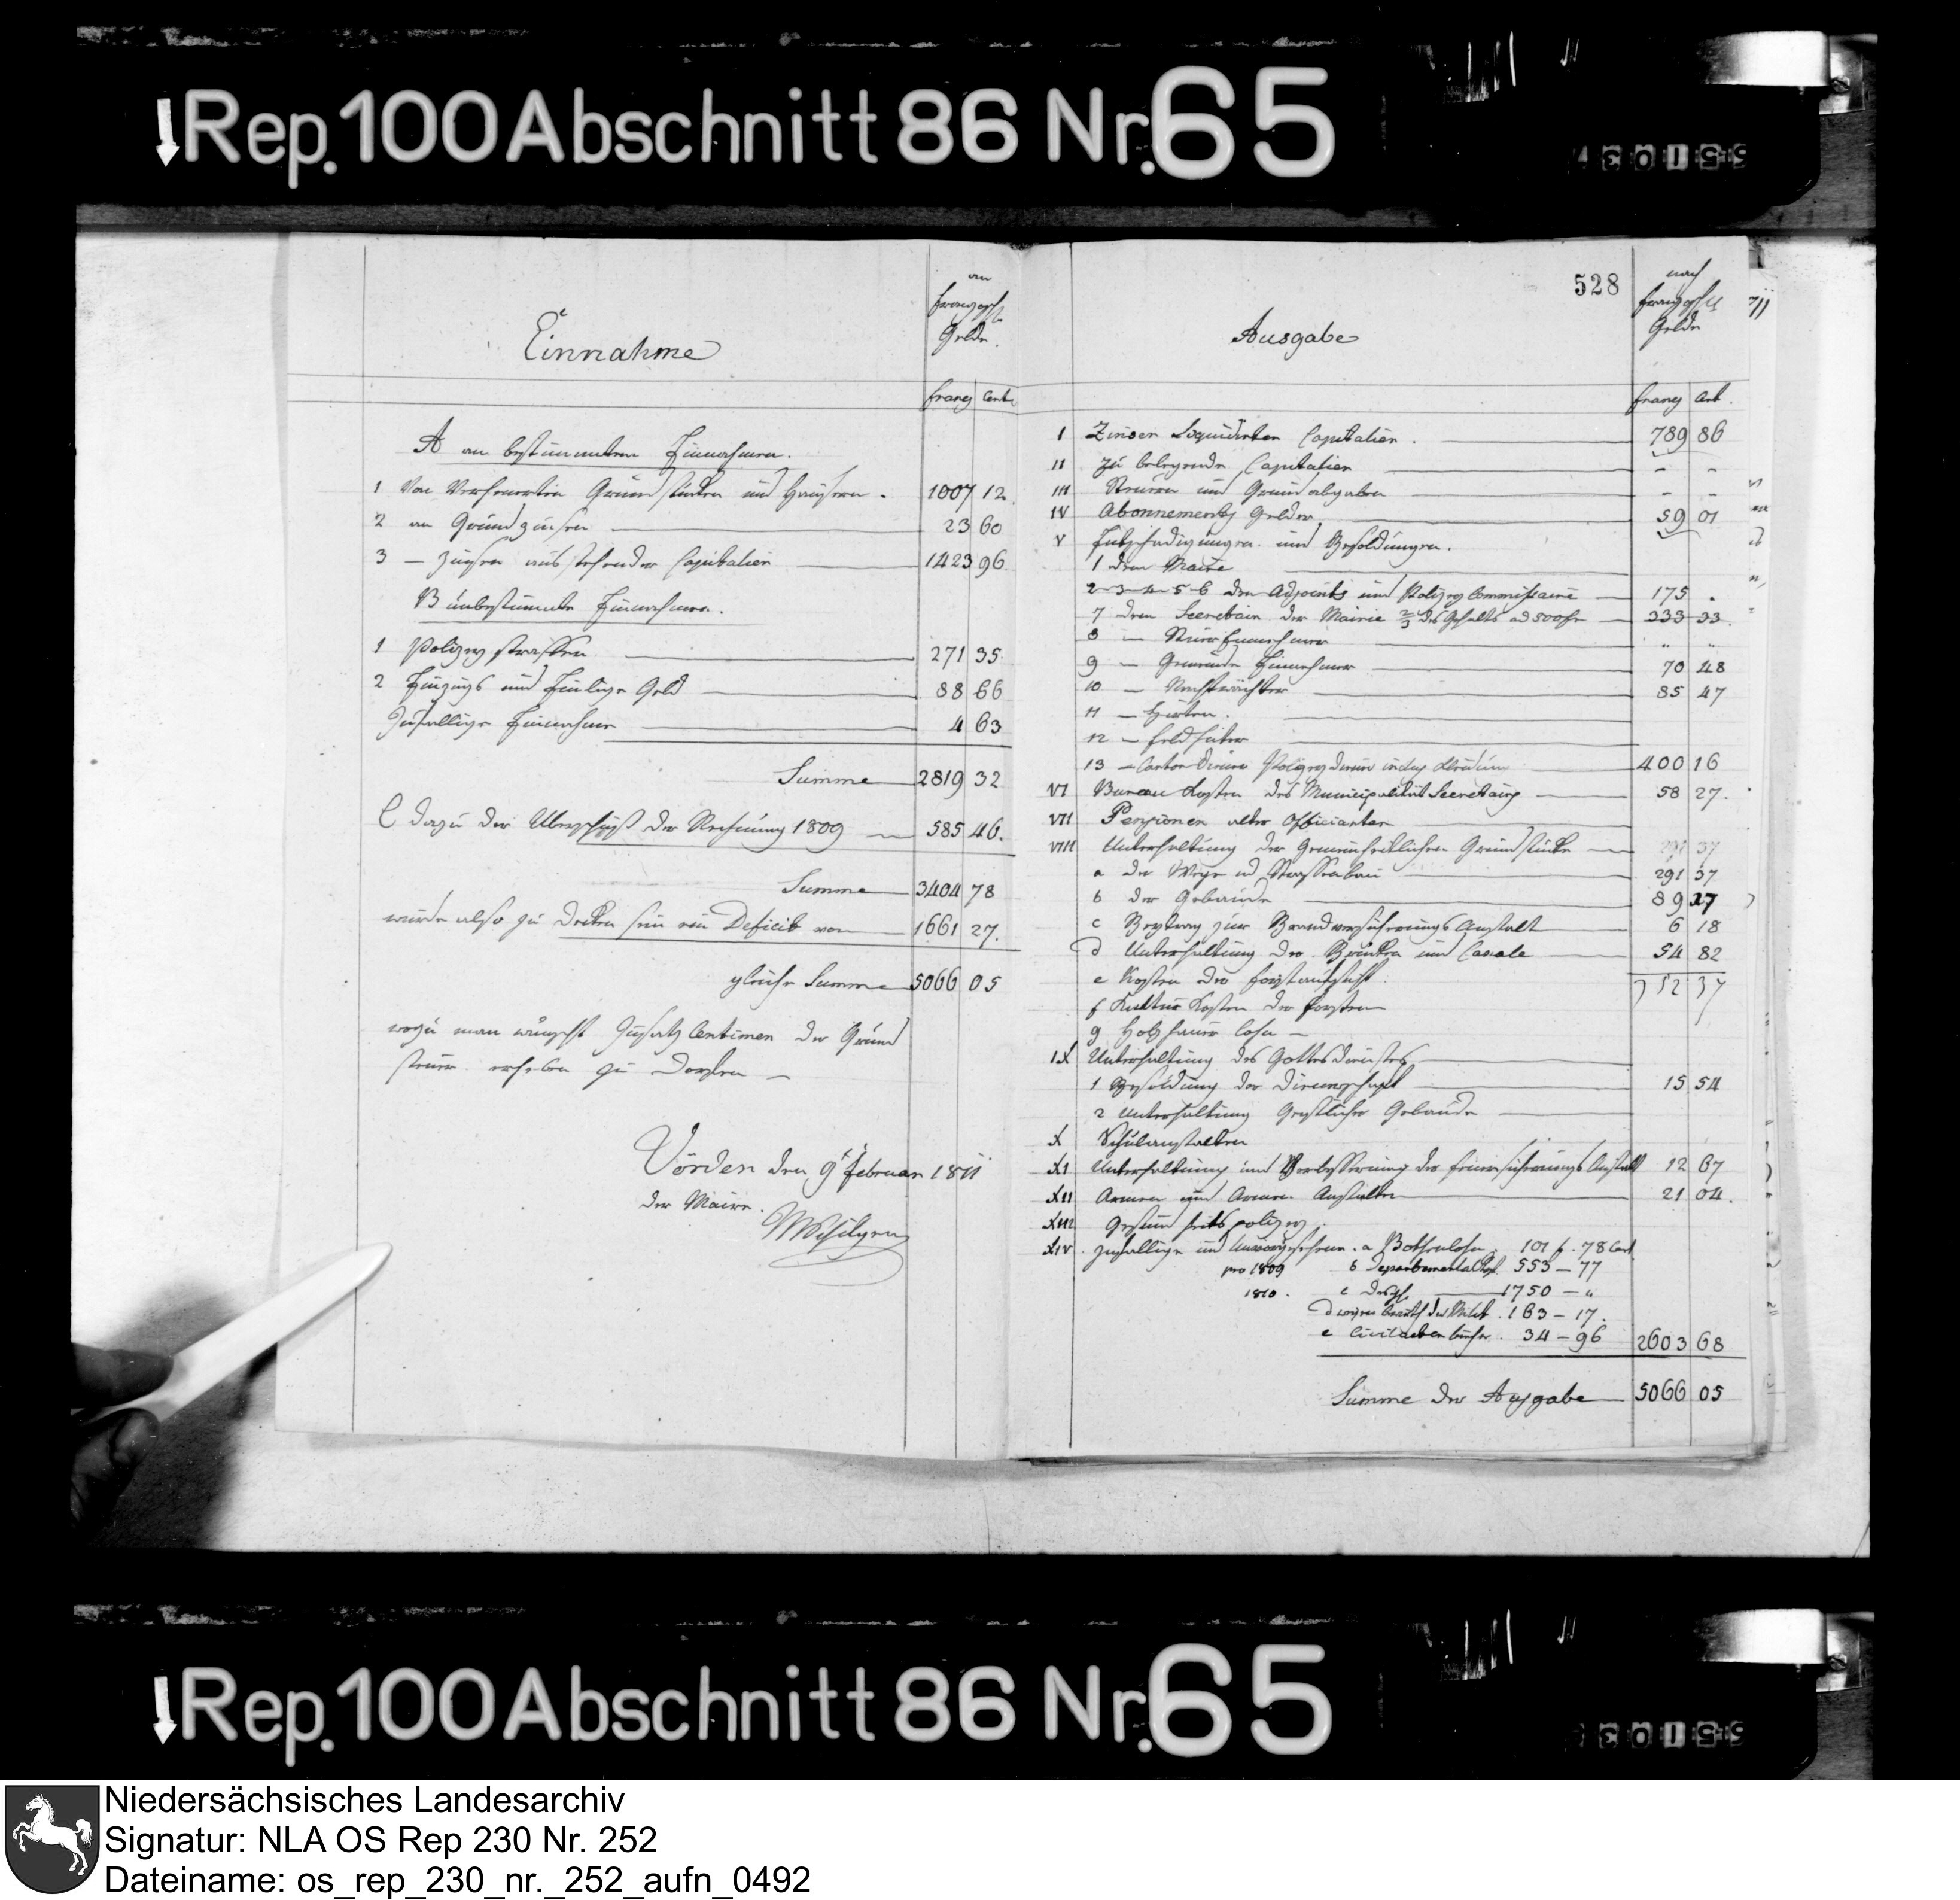 Rep. 100 Abschnitt 86 Nr. 65
Einnahme
an
französch
Gelde.
Francs Cent.
A an bestimmten Einnahmen.
1 Von Verheuerten Grundstücken und Häusern. 1007 12
2 an Grundzinsen 23 60
3 — Zinsen ausstehender Capitalien 1423 96
B unbestimmte Einnahmen.
1 Polizeystraffen 271 35
2 Einzugs und Geld 88 66
Zufällige Einnahme 4 63
Summe 2819 32
C dazu der Überschuß der Rechnung 1809 585 46.
Summe 3404 78
würde also zu decken sein ein Deficit von 1661 27.
gleiche Summe 5066 05
wozu man wünscht Zusatz Centimen der Grund
steuer erheben zu dürfen —
Vörden den 9t Februar 1811
der Maire.
528
Ausgabe
nach
französch
Gelde
Francs Cent.
I Zinsen Liquidirter Capitalien. 789 86
II Zu belegende Capitalien - -
III Steuern und Grundabgaben - -
IV Abonnements Gelder 59 01
V Entschädigungen und Besoldungen.
1 dem Maire
2-3-4-5-6 den Adjoints und Polizey Commissaire 175 .
7 dem Secretair der Mairie 2/3 des Gehalts ad 500 fr 333 33.
8 — Steuer Einnehmer " "
9 — Gemeinde Einnehmer 70 48
10 — Nachtwächter 85 47
11 — Hirten.
12 — Feldhüter
13 — Canton Diener Polizeydiener 400 16
VI Bureau Kosten des Municipalität Secretairs 58 27.
VII Pensionen alter Officianten
VIII Unterhaltung der Gemeinheitlichen Grundstücke 291 37
a der Wege und Strassenbau 291 37
b der Gebäude 89 27
c Beytrag zur Brandversicherungs Anstalt 6 18
d Unterhaltung der Brücken und Canäle 54 82
e Kosten der Forstaufsicht.
f Kultur Kosten der Forsten
g Holzhauer Lohn —
IX Unterhaltung des Gottesdienstes
1 Besoldung der Dienerschaft 15 54
2 Unterhaltung Geistlicher Gebäude
X Schulanstalten
XI Unterhaltung und Verbesserung der Feuersicherungs Anstalt 12 67
XII Armen und Armen Anstalten 21 04.
XIII Gesundheitspolizey.
XIV. Zufällige und . a Bothenlohn 101 f. 78 Cent
pro 1809 b Departemental 553 — 77
1810. c 1750 — "
d 163 — 17.
e Civilacten bücher. 34 — 96 2603 68
Summe der Ausgabe 5066 05
Rep. 100 Abschnitt 86 Nr. 65
Niedersächsisches Landesarchiv
Signatur: NLA OS Rep 230 Nr. 252
Dateiname: os_rep_230_nr._252_aufn_0492